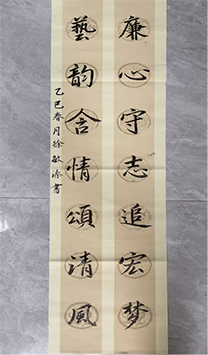 廉心守志追宏梦
藝韵含情頌清風
乙巳春月徐敏添書